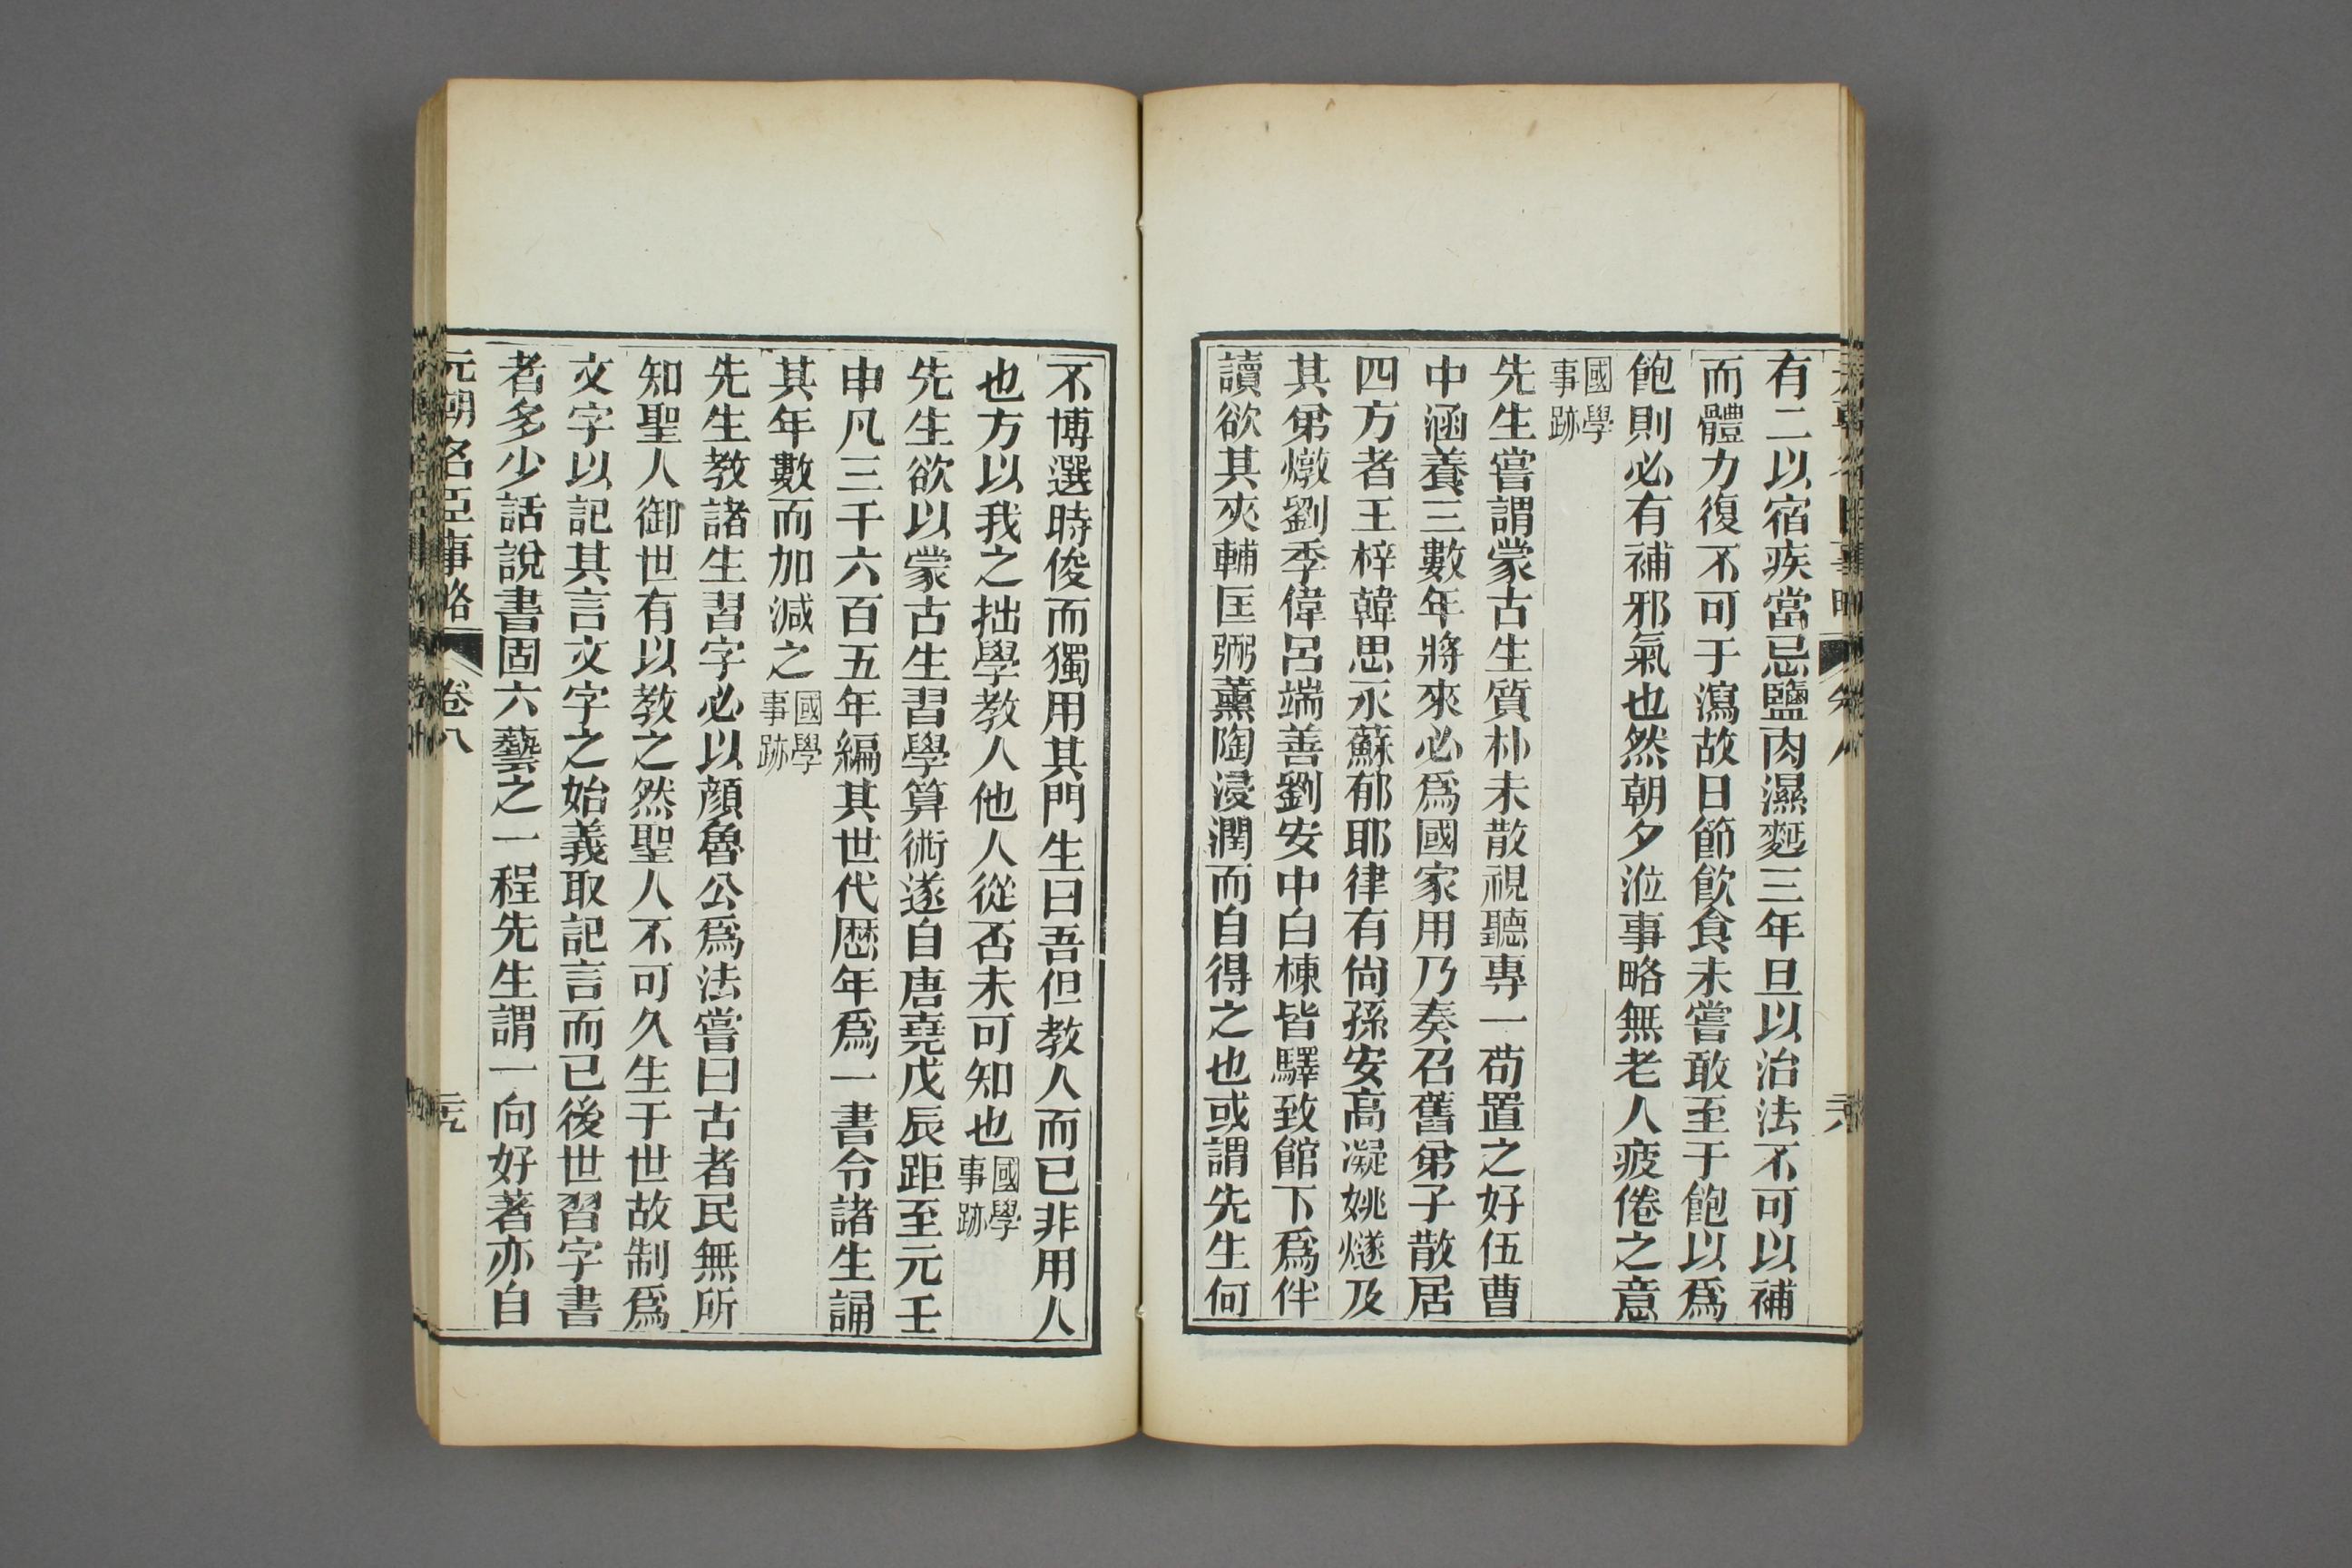 有二以宿疾當忌鹽肉濕麪三年旦以治法不可以補
而體力復不可于瀉故日節飲食未嘗敢至于飽以爲
飽則必有補邪氣也然朝夕涖事略無老人疲倦之意
國學
事跡
先生嘗謂蒙古生質朴未散視聽專一苟置之好伍曹
中涵養三數年將來必爲國家用乃奏召舊弟子散居
四方者王梓韓思永蘇郁耶律有尙孫安高凝姚燧及
其弟燉劉季偉呂端善劉安中白棟皆驛致館下爲伴
讀欲其夾輔匡弼薰陶浸潤而自得之也或謂先生何
不博選時俊而獨用其門生曰吾但教人而已非用人
也方以我之拙學教人他人從否未可知也國學
事跡
先生欲以蒙古生習學算術遂自唐堯戊辰距至元壬
申凡三千六百五年編其世代歴年爲一書令諸生誦
其年數而加減之國學
事跡
先生教諸生習字必以顏魯公爲法嘗曰古者民無所
知聖人御世有以教之然聖人不可久生于世故制爲
文字以記其言文字之始義取記言而已後世習字書
者多少話說書固六藝之一程先生謂一向好著亦自
元朝名臣事略
卷八
元